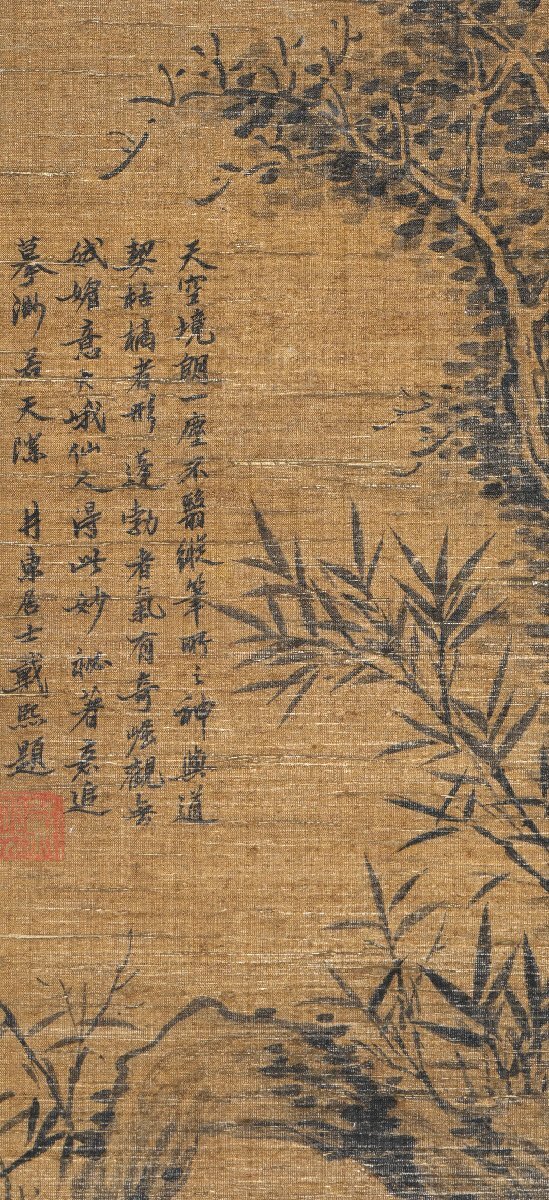 天空境朗一塵不翳縱筆所之神與道
契枯槁者形蓬勃者氣有奇崛觀無
娬媚意大峨仙人得此妙秘著意追
摹渺若天際 井東居士戴熙題